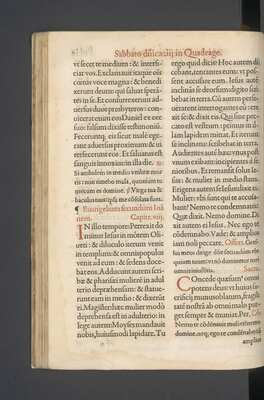 Sabbato
in Quadrage.
vt secet te medium : & interfi-
ciat vos. Exclamauit itaque ois
coetus voce magna : & benedi
xerunt deum: qui saluat speran
tes in se. Et consurrexerunt ad-
uersus duos presbyteros: con-
uicerat enim eos Daniel ex ore
suo falsum dixisse testimoniũ.
Feceruntq; eis sicut male ege-
rant aduersus proximum: & in
terfecerunt eos: Et saluatus est
sanguis innoxius in illa die.
Si ambulem in medio vmbre mor
tis : non timebo mala, quoniam tu
mecum es domine. Virga tua &
baculus tuus ipsa me cõsolata sunt.
Euangelium secundum Ioã
nem. Capite. viij.
IN illo tempore: Perrexit do
minus Iesus in mõtem Oli-
ueti : & diluculo iterum venit
in templum: & omnis populus
venit ad eum: & sedens doce-
bat eos. Adducunt autem scri-
bæ & pharisæi mulierẽ in adul
terio deprehensam: & statue-
runt eam in medio: & dixerũt
ei. Magister hæc mulier modò
deprehensa est in adulterio: in
lege autem Moyses mandauit
nobis, huiusmodi lapidare. Tu
ergo quid dicis? Hoc autem di
cebant, tentantes eum: vt pos-
sent accusare eum. Iesus autẽ
inclinans se deorsum: digito scri
bebat in terra. Cũ autem perse-
uerarent interrogantes eũ : ere-
xit se: & dixit eis. Qui sine pec-
cato est vestrum: primus in il-
lam lapidem mittat. Et iterum
se inclinans: scribebat in terra.
Audientes autẽ hæc: vnus post
vnum exibant: incipientes à se
nioribus. Et remansit solus Ie-
sus: & mulier in medio stans.
Erigens autem se Iesus: dixit ei.
Mulier: vbi sunt qui te accusa-
bant? Nemo te condemnauit?
Quæ dixit. Nemo domine. Di
xit autem ei Iesus. Nec ego te
cõdemnabo. Vade: & amplius
iam noli peccare. Offert. Gres-
sus meos dirige dñe secundum elo-
quium tuum: vt nõ dominetur mei
omnis iniustitia. Secre.
COncede quæsumꝰ omni
potens deus: vt huius sa-
crificij munus oblatum, fragili
tatẽ nostrã ab omni malo pur-
get semper & muniat. Per.
Nemo te cõdemnauit mulier? nemo
domine. nec ego te condemnabo: iã
amplius